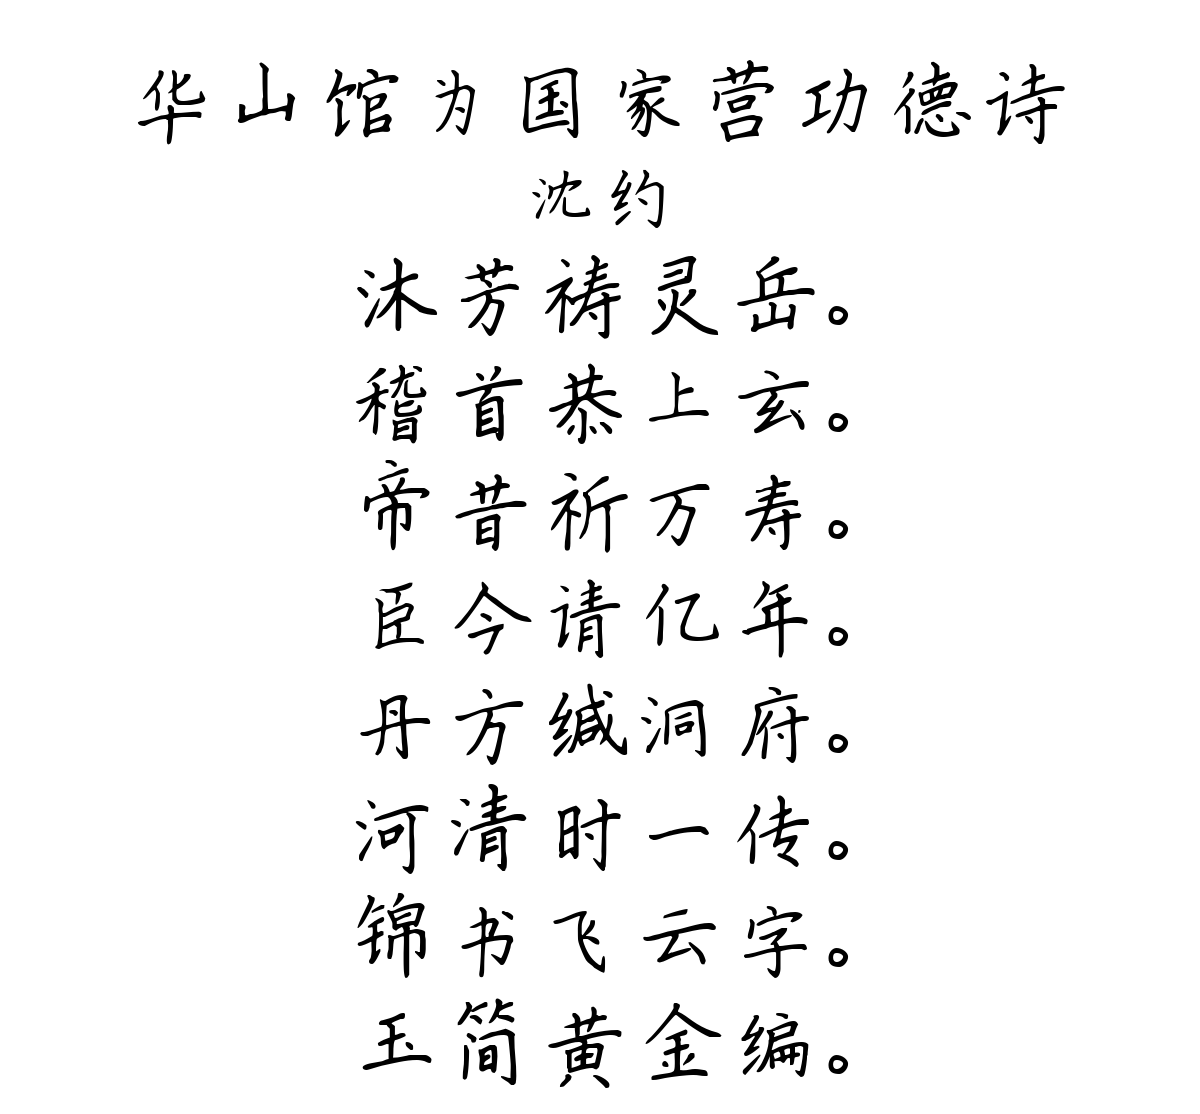 华山馆为国家营功德诗
沈约
沐芳祷灵岳。
稽首恭上玄。
帝昔祈万寿。
臣今请亿年。
丹方缄洞府。
河清时一传。
锦书飞云字。
玉简黄金编。